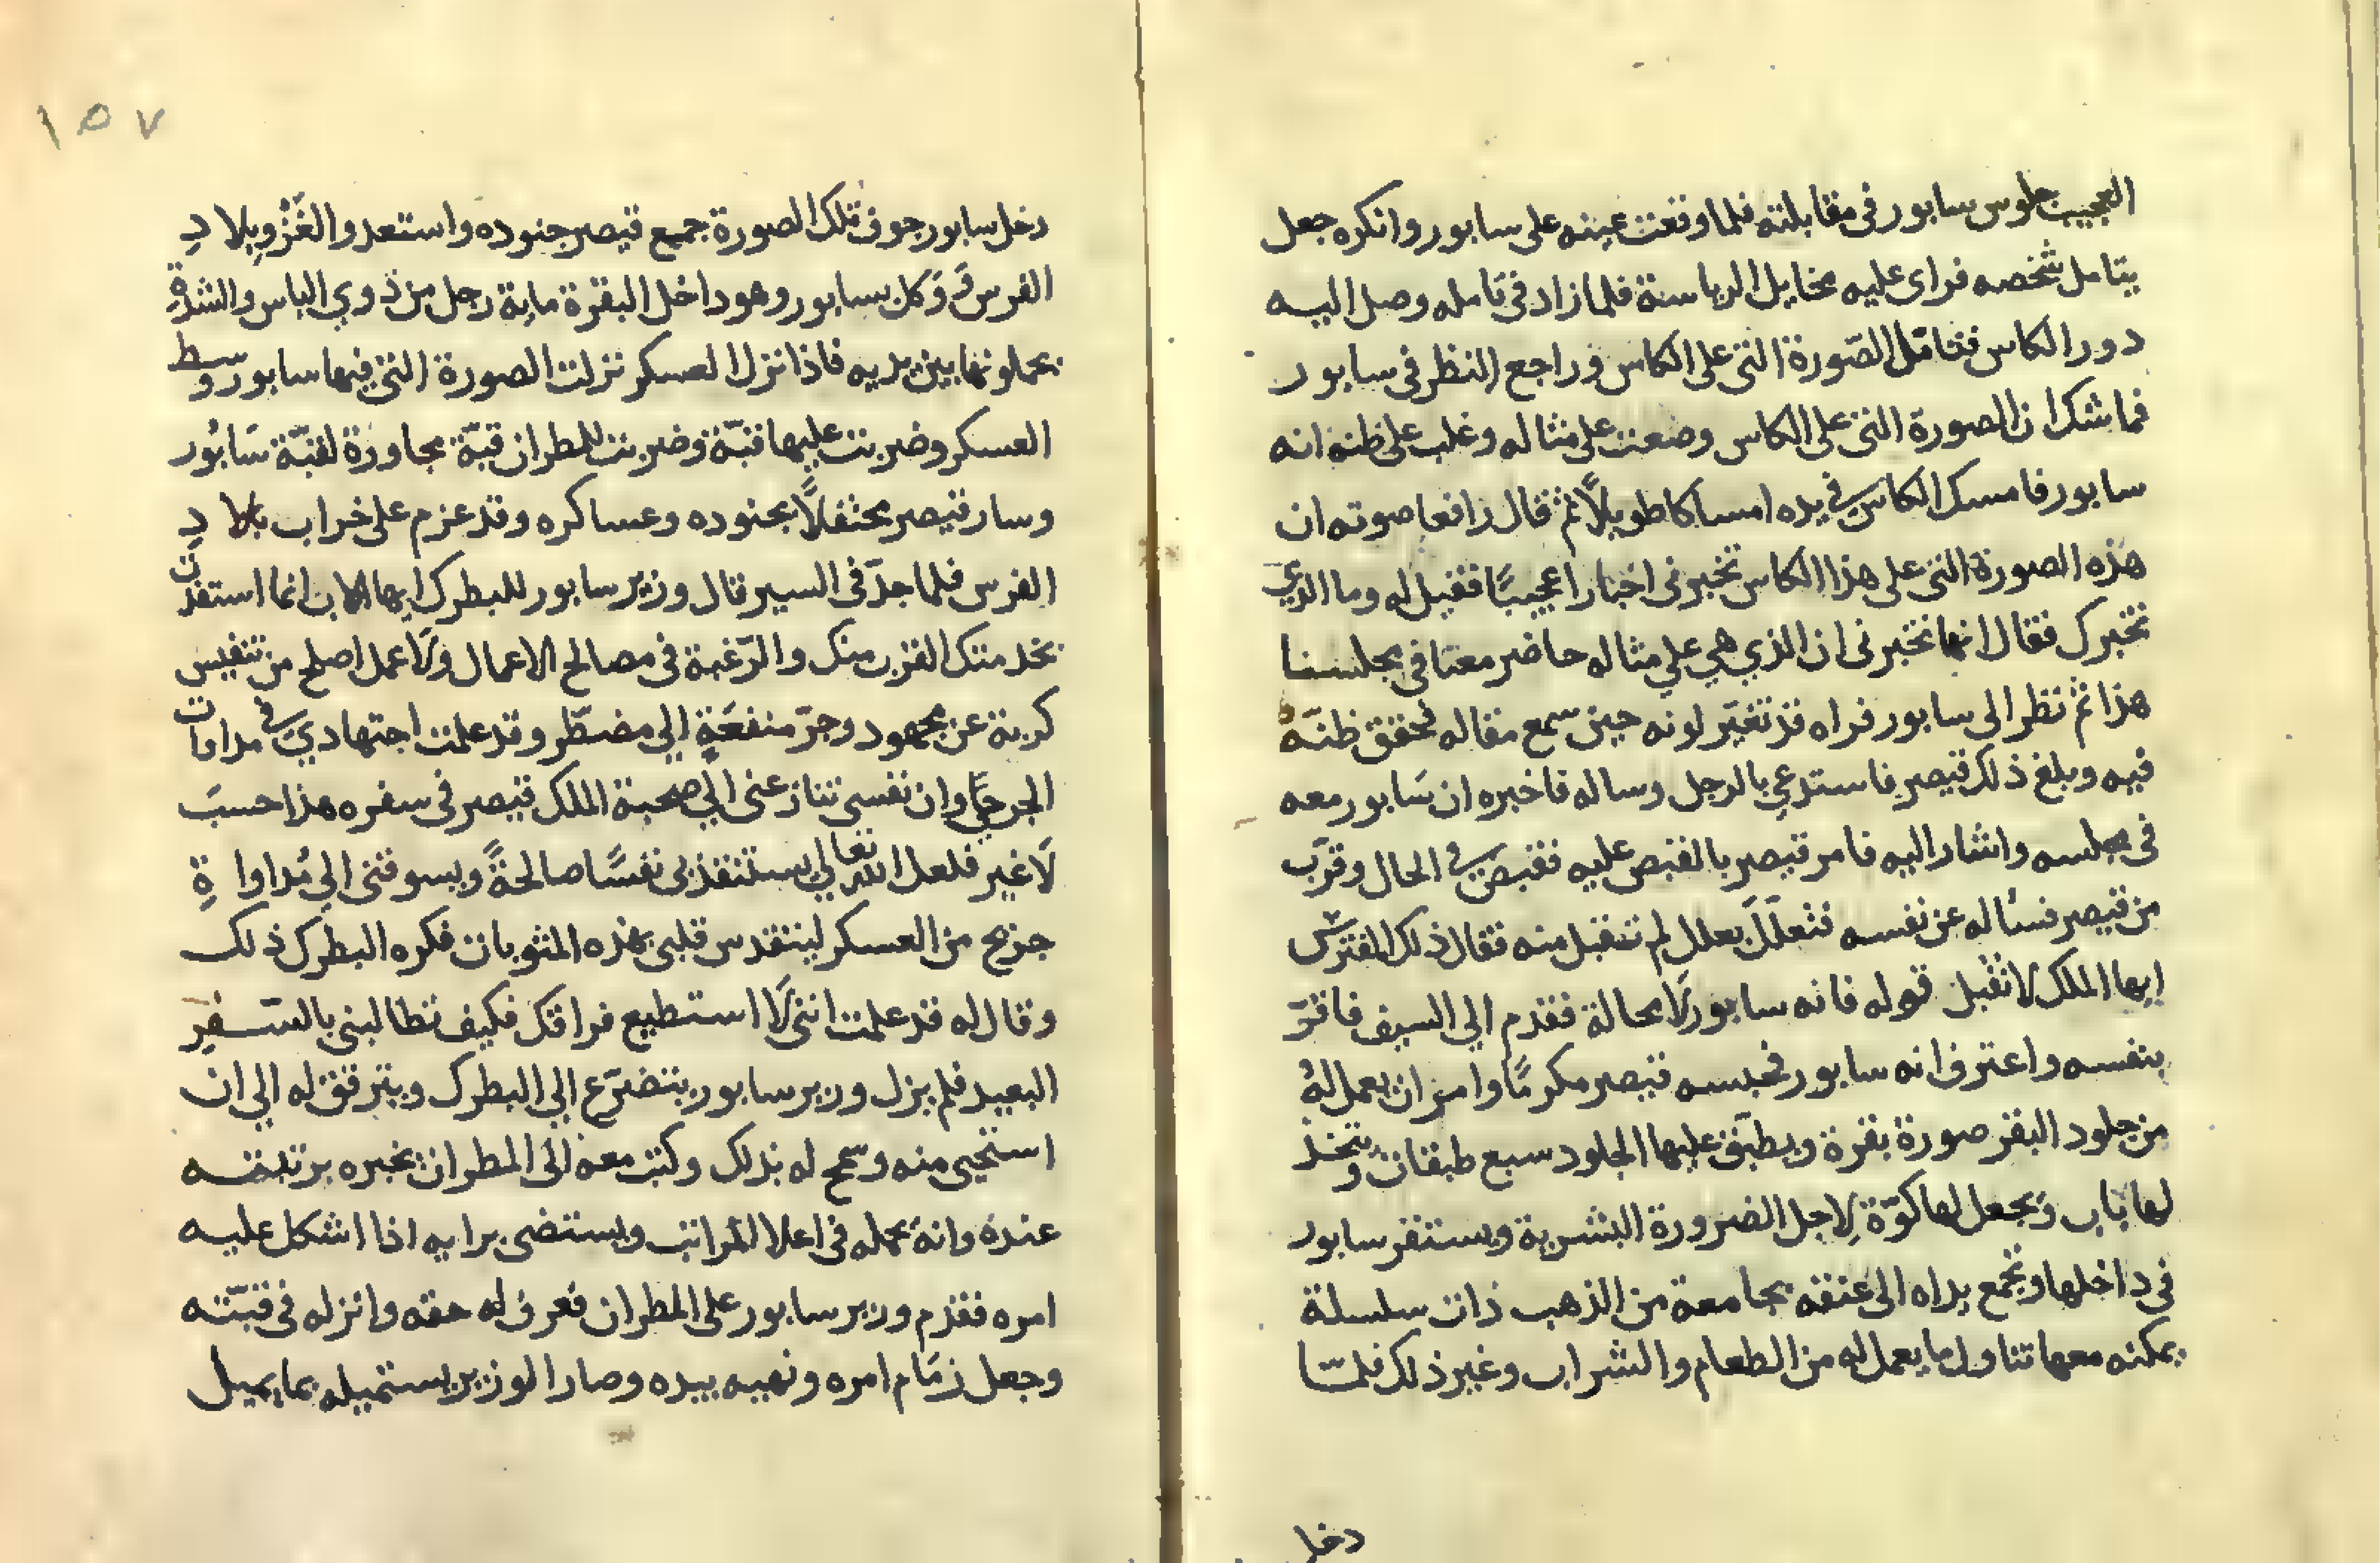 العجيب جلوس سابور في مقابلته فلما وقعت عينه على سابور وانكره جعل
يتامل شخصه فراى عليه مخايل الرياسة فلما زاد في تامله وصل اليه
دور الكاس فتامّل الصّورة التى على الكاس وراجع النظر في سابور
فما شك ان الصورة التى على الكاس وضعت على مثاله وغلب على ظنه انه
سابور فامسك الكاس في يده امساكا طويلاً ثم قال رافعا صوته ان
هذه الصورة التى على هذا الكاس تخبرنى اخبارا عجيبًا فقيل له وما الذي
تخبرك فقال انها تخبرنى ان الذي هي علي مثاله حاضر معنا في مجلسنا
هذا ثم نظر الى سابور فراه قد تغيّر لونه حين سمع مقاله فحقق ظنّه
فيه وبلغ ذلك قيصر فاستدعي بالرجل وساله فاخبره ان سَابور معه
فى مجلسه واشار اليه فامر قيصر بالقبض عليه فقبض في الحال وقرّب
من قيصر فسُاله عن نفسه فتعلّلَ بعلل لم تتقبل منه فقال ذلك المفترس
ايها الملك لا تقبل قوله فانه سابور لَا محالة فقدم الي السيف فاقرّ
بنفسه واعترف انه سابور فحبسه قيصر مكرمًا وامر ان يعمل لهُ
من جلود البقر صورة بقرة ويطبّق عليها الجلود سبع طبقات ويتخذ
لها باب وَيجعل لها كوّة لِاجل الضرورة البشرية ويستقر سابور
فى داخلها وتجمع يداه الى عنقه بجامعة من الذهب ذات سلسلة
يمكنه معها تناول ما يعمل له من الطعام والشراب وغير ذلك فلمّا
دخل
١٥٧
دخل سابور جوف تلك الصورة جميع قيصر جنوده واستعد والغَزْو بِلاد
الفرس وَوَكل بسابور وهو داخل البقرة ماية رجل من ذوي الباس والشدة
يحملونها بين يديه فاذا نزل العسكر نزلت الصورة التى فيها سابور وسط
العسكر وضربت عليها قبّة وضربت للمطران قبّة مجاورة لقبّة سَابُور
وسار قيصر محتفلاً بجنوده وعساكره وقد عزم على خراب بلاد
الفرس فلما جدّ فى السير قال وزير سابور للبطرك ايها الاب انما استفدت
بخدمتك القرب منك والرّغبة فى مصالح الاعمال ولَا عمل اصلح من تنفيس
كربة عن مجهود وجرّ منفعَةٍ الي مضطّر وقد علمت اجتهادي في مداوات
الجرحَي وان نفسى تنازعنى الي صحبة الملك قيصر فى سفره هذا حسبَ
لَا غير فلعل الله تعالي يستنقذ بى نفسًا صالحةً ويسوقنى الي مُداواةِ
جريح من العسكر ليتقدس قلبى بهذه المثوبات فكره البطرك ذلك
وقال له قد علمت اننى لَا استطيع فراقك فكيف تطالبنى بالسّفرِ
البعيد فلم يزل وزير سابور يتضرّع الي البطرك ويترقق له الي ان
استحيى منه وسمح له بذلك وكتب معه الى المطران يخبره برتبته
عنده وانهُ يحمله فى اعلا المراتب ويستضى برايه اذا اشكل عليه
امره فقدم وزير سابور على المطران فعرف له حقه وانزله فى قبّته
وجعل زمَام امره ونهيه بيده وصار الوزير يستميله بما يميل